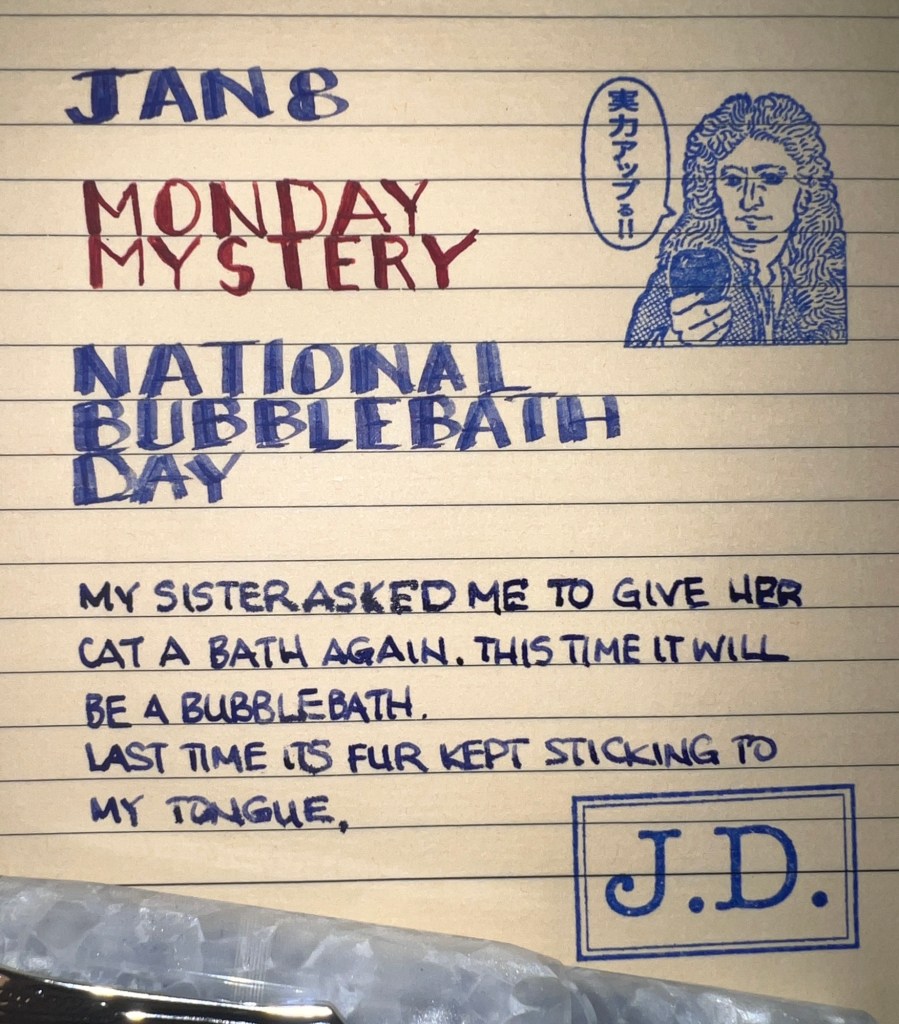 JAN 8
実力アップる!!
MONDAY
MYSTERY
NATIONAL
BUBBLEBATH
DAY
MY SISTER ASKED ME TO GIVE HER
CAT A BATH AGAIN. THIS TIME IT WILL
BE A BUBBLEBATH.
LAST TIME ITS FUR KEPT STICKING TO
MY TONGUE.
J.D.